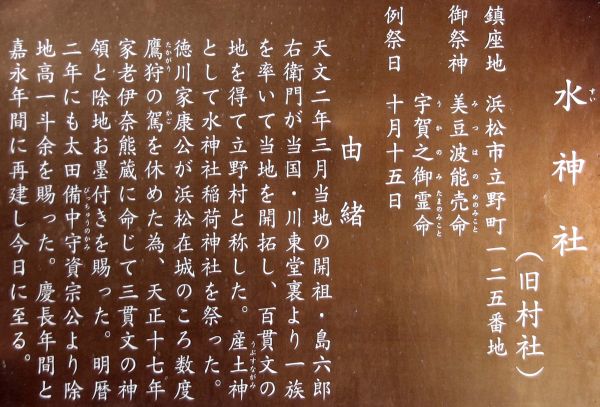 水神社
すい
（旧村社）
鎮座地 浜松市立野町一二五番地
御祭神 美豆波能売命
みつはのめのみこと
宇賀之御霊命
うかのみたまのみこと
例祭日 十月十五日
由緒
天文二年三月当地の開祖・島六郎
右衛門が当国・川東堂裏より一族
を率いて当地を開拓し、百貫文の
地を得て立野村と称した。産土神
うぶすながみ
として水神社稲荷神社を祭った。
徳川家康公が浜松在城のころ数度
鷹狩の駕を休めた為、天正十七年
たかがり かご
家老伊奈熊蔵に命じて三貫文の神
領と除地お墨付きを賜った。明暦
二年にも太田備中守資宗公より除
びっちゅうりのかみ
地高一斗余を賜った。慶長年間と
嘉永年間に再建し今日に至る。